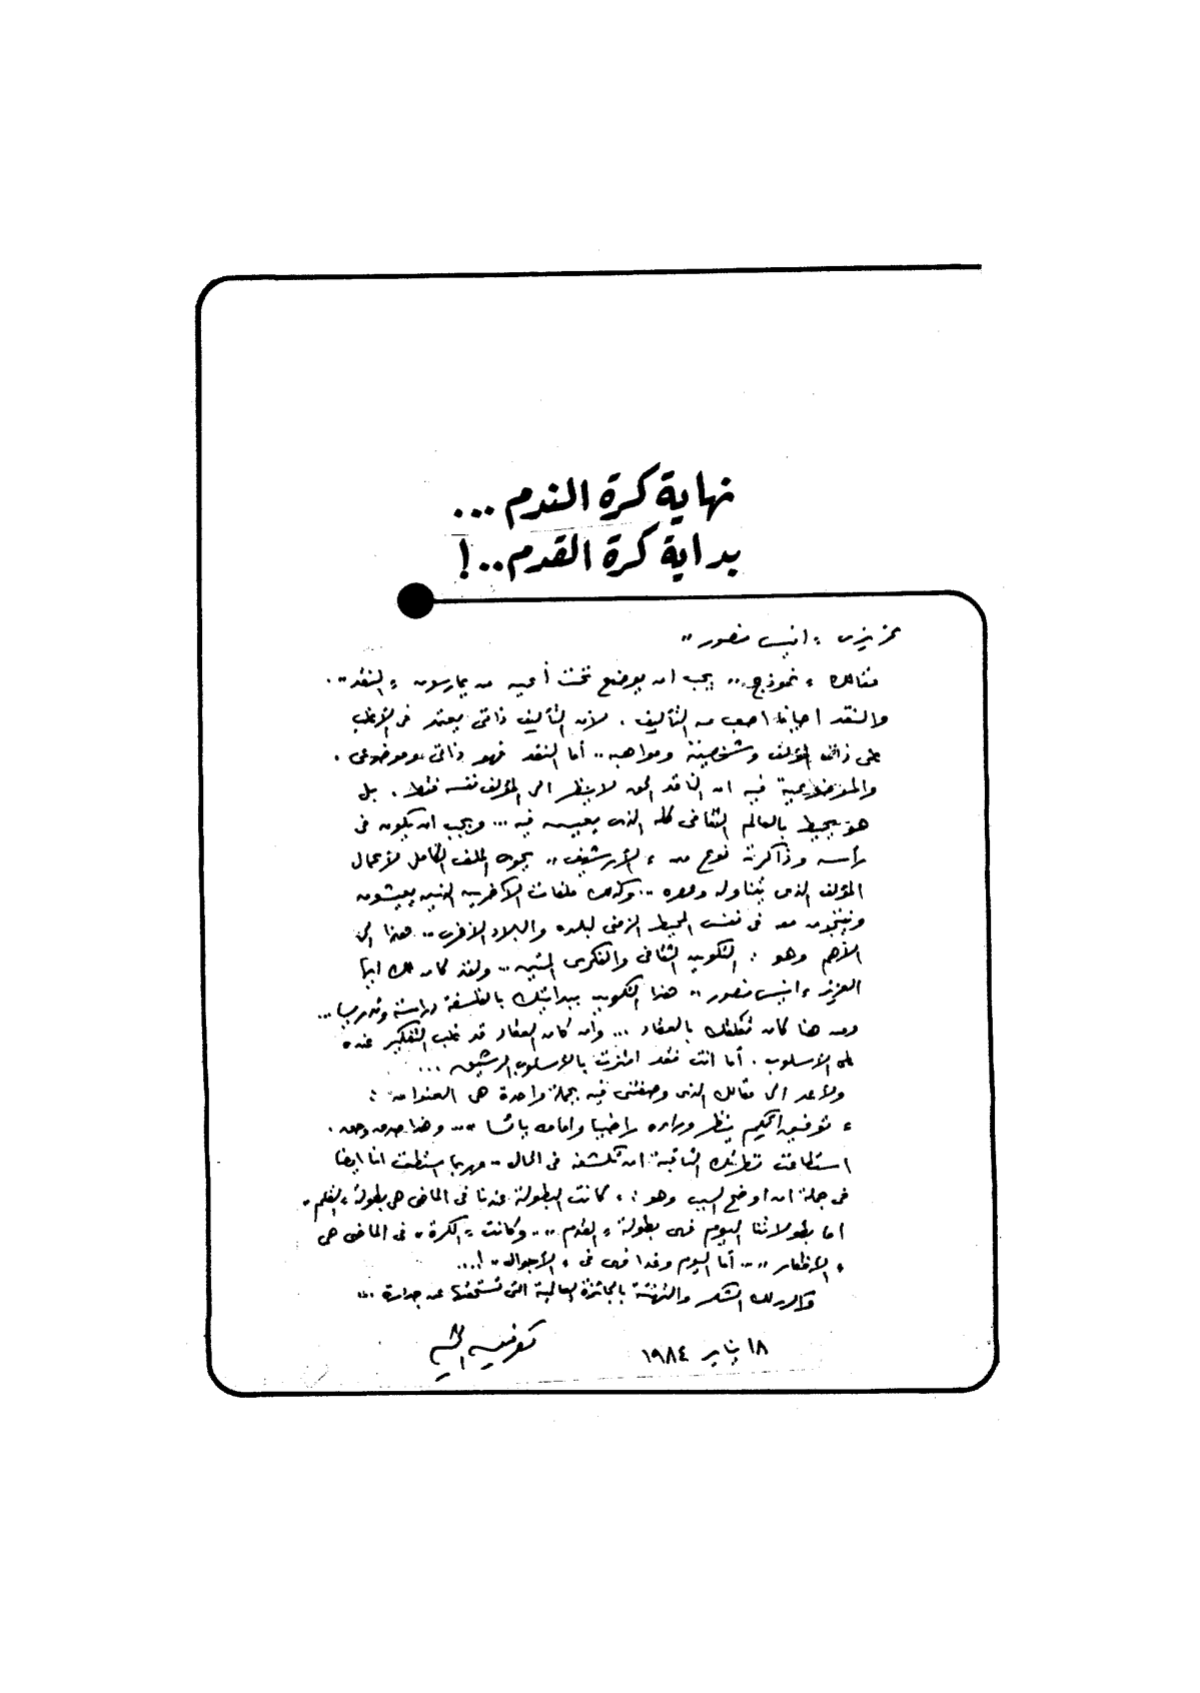 نهاية كرة الندم ...
بداية كرة القدم ..!
عزيزى « انيس منصور »
مقالك « نموذج » .. يجب ان يوضع تحت أعين من يمارسون « النقد » ..
والنقد احيانا اصعب من التأليف . لأن التأليف ذاتى يعتمد فى الأغلب
على ذات المؤلف وشخصيته ومواهبه .. أما النقد فهو ذاتى وموضوعى .
والموضوعية فيه ان الناقد الحق لا ينظر الى المؤلف نفسه فقط . بل
هو يحيط بالعالم الثقافى كله الذى يعيش فيه ... ويجب ان يكون فى
رأسه وذاكرته نوع من « الأرشيف » يحوى الملف الكامل لأعمال
المؤلف الذى يتناوله وعصره .. وكذلك ملفات الآخرين الذين يعيشون
وينتجون معه فى نفس المحيط الزمنى لبلده والبلاد الأخرى .. هذا الى
الأهم وهو : التكوين الثقافى والفكرى المتين .. ولقد كان لك ايها
العزيز « انيس منصور » هذا التكوين ببدايتك بالفلسفة دراسة وتدريسا ...
ومن هنا كان تعلقك بالعقاد ... وان كان العقاد قد غلب التفكير عنده
على الاسلوب . أما انت فقد امتزت بالأسلوب الرشيق ...
ولأعد الى مقالك الذى وصفتنى فيه بجملة واحدة هى العنوان :
« توفيق الحكيم ينظر وراءه راضيا وامامه يائسا » .. وهذا صدق وحق .
استطاعت نظرتك الثاقبة ان تكشفه فى الحال .. وربما استطعت انا ايضا
فى جملة ان اوضح السبب وهو : « كانت البطولة عندنا فى الماضى هى بطولة « القلم »
اما بطولاتنا اليوم فهى بطولة « القدم » .. وكانت « الكرة » فى الماضى هى
« الأفكار » .. أما اليوم وغدا فهى فى « الأجوال » !...
ولك الشكر والتهنئة بالجائزة العالمية التى تستحقها عن جدارة ..
١٨ يناير ١٩٨٤
توفيق الحكيم